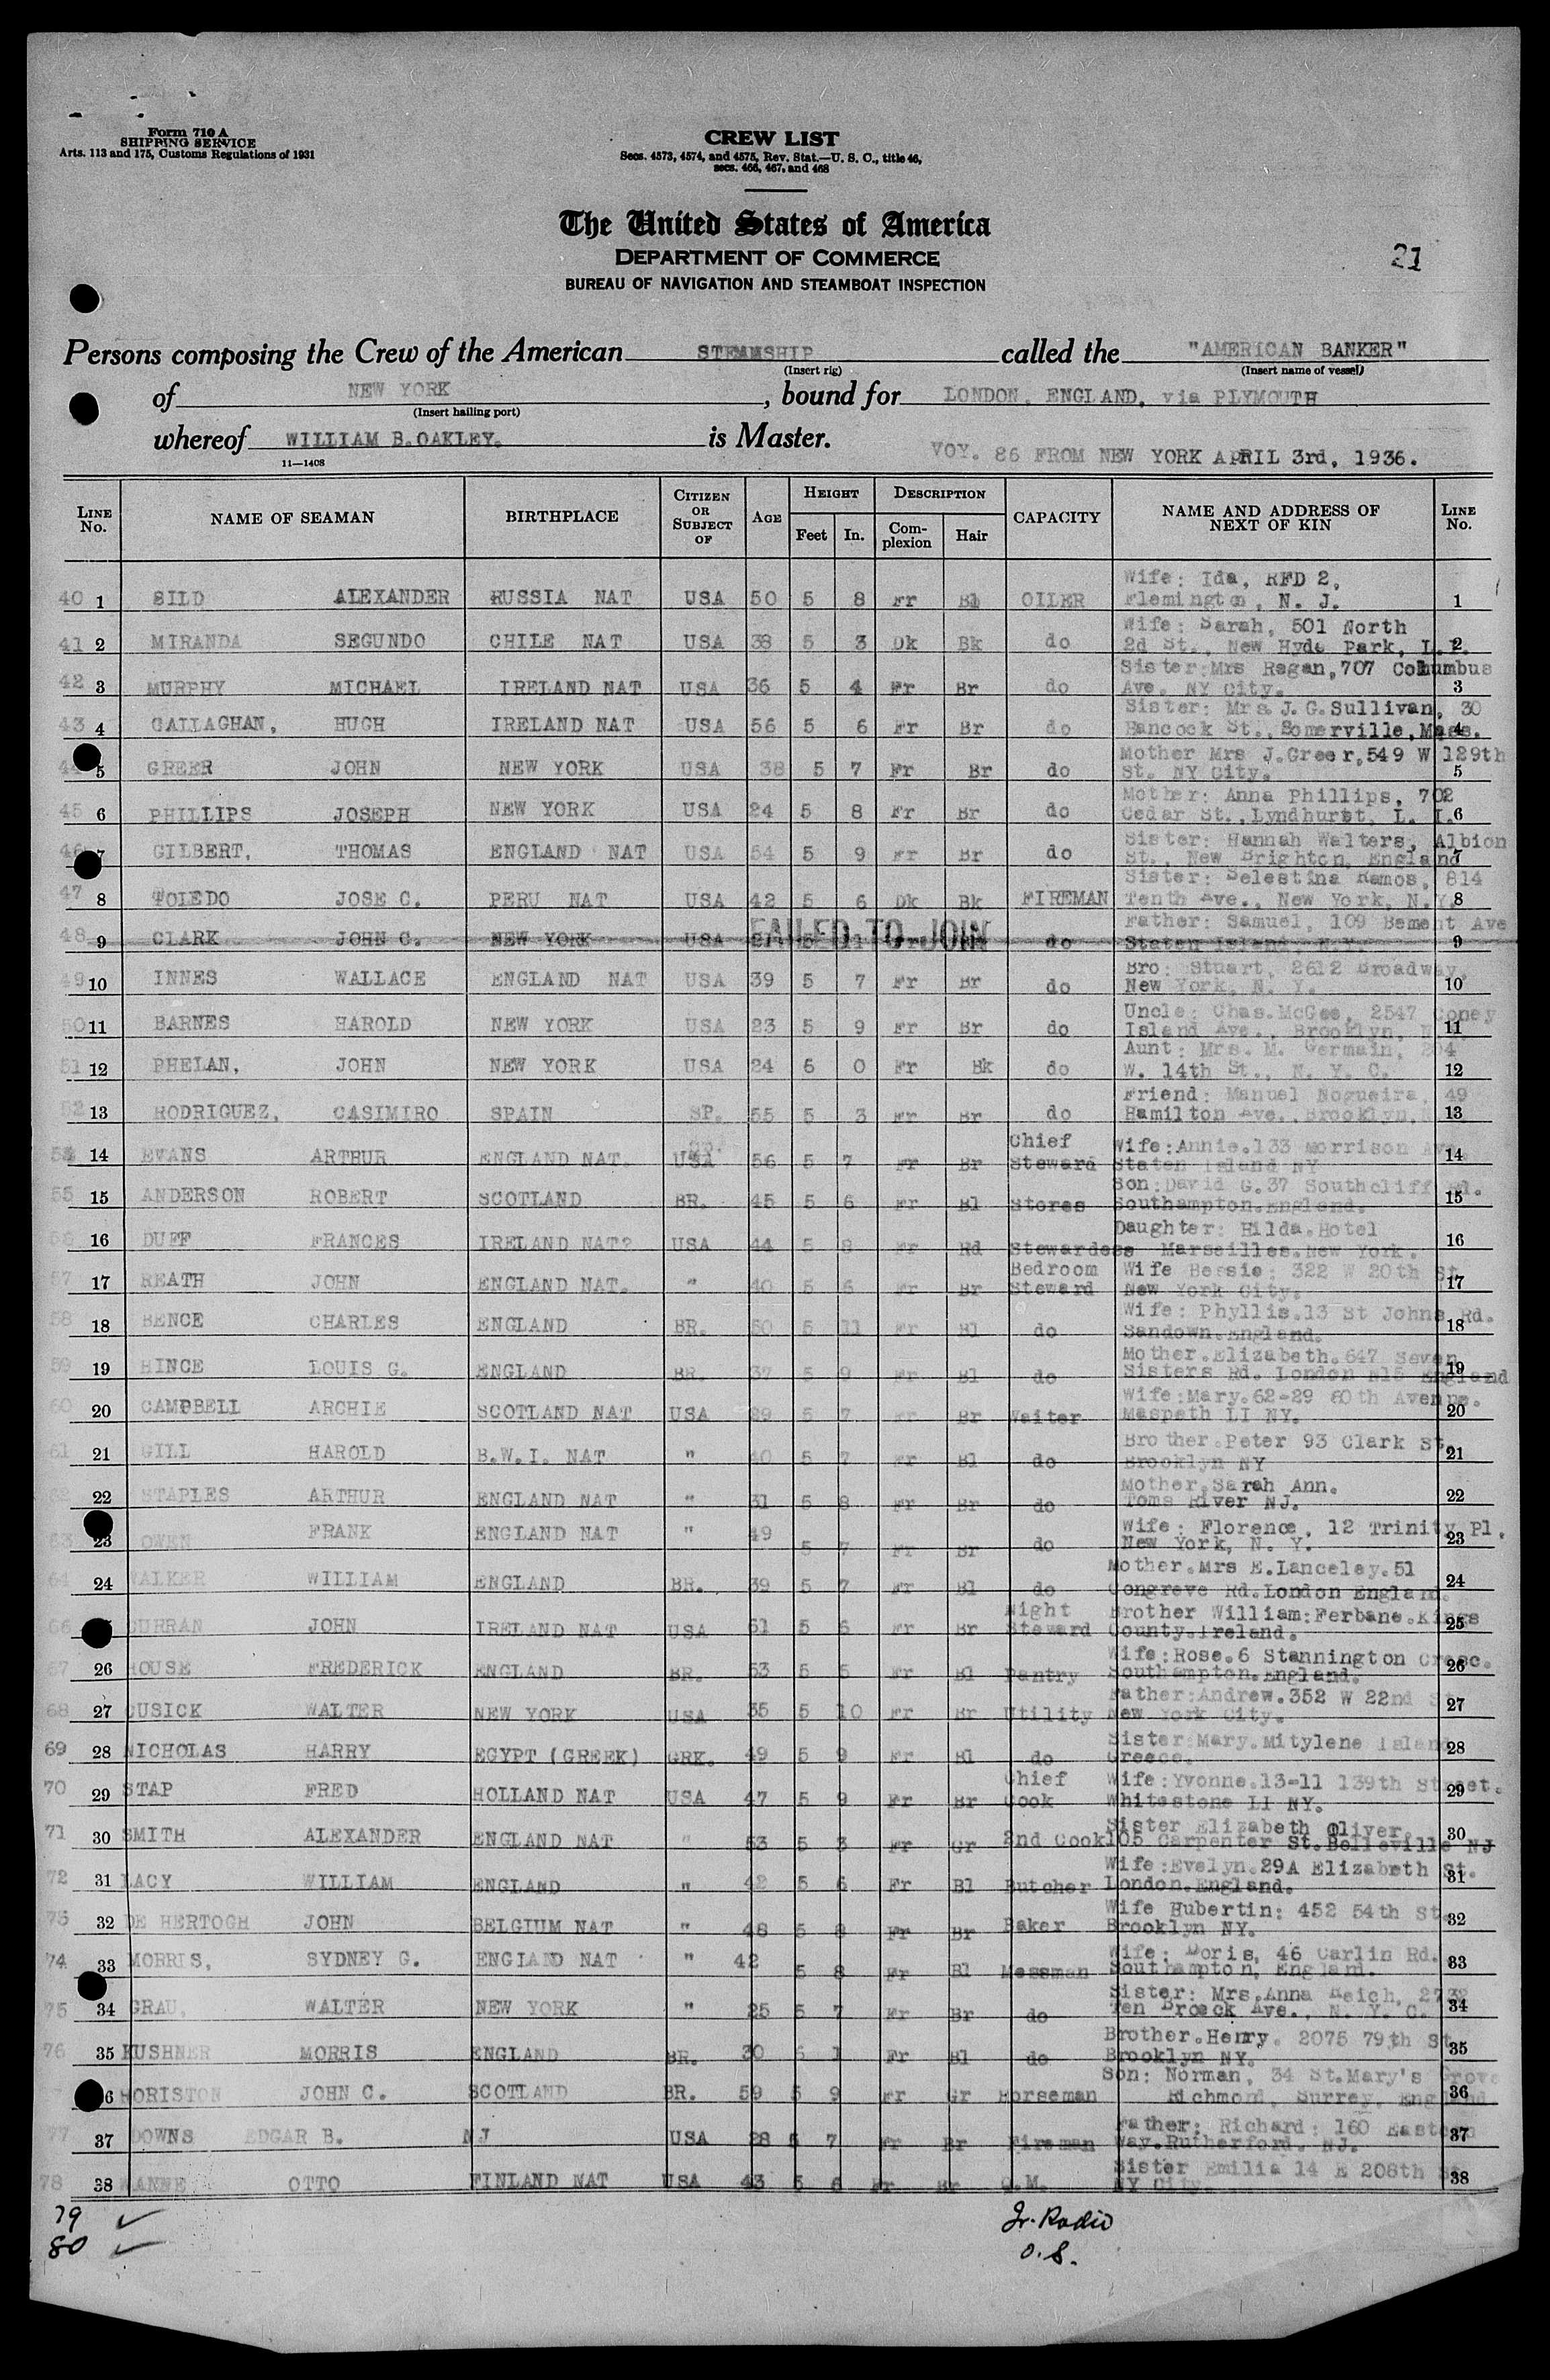 Form 710 A
SHIPPING SERVICE
Arts. 113 and 175, Customs Regulations of 1931
CREW LIST
Secs. 4573, 4574, and 4575, Rev. Stat.—U. S. C., title 46,
secs. 466, 467, and 468
The United States of America
DEPARTMENT OF COMMERCE
BUREAU OF NAVIGATION AND STEAMBOAT INSPECTION
21
Persons composing the Crew of the American STEAMSHIP called the "AMERICAN BANKER"
(Insert rig) (Insert name of vessel)
of NEW YORK, bound for LONDON, ENGLAND, via PLYMOUTH
(Insert hailing port)
whereof WILLIAM B.OAKLEY. is Master.
11—1408
VOY. 86 FROM NEW YORK APRIL 3rd, 1936.
LINE No. NAME OF SEAMAN BIRTHPLACE CITIZEN OR SUBJECT OF AGE HEIGHT Feet In. DESCRIPTION Complexion Hair CAPACITY NAME AND ADDRESS OF NEXT OF KIN LINE No.
Wife: Ida, RFD 2,
40 1 SILD ALEXANDER RUSSIA NAT USA 50 5 8 Fr Bl OILER Flemington, N. J. 1
Wife: Sarah, 501 North
41 2 MIRANDA SEGUNDO CHILE NAT USA 38 5 3 Dk Bk do 2d St., New Hyde Park, L.I. 2
Sister:Mrs Regan,707 Columbus
42 3 MURPHY MICHAEL IRELAND NAT USA 36 5 4 Fr Br do Ave. NY City. 3
Sister: Mrs J.G.Sullivan, 30
43 4 GALLAGHAN, HUGH IRELAND NAT USA 56 5 6 Fr Br do Hancock St., Somerville,Mass. 4
Mother Mrs J.Greer,549 W 129th
44 5 GREER JOHN NEW YORK USA 38 5 7 Fr Br do St. NY City. 5
Mother: Anna Phillips, 702
45 6 PHILLIPS JOSEPH NEW YORK USA 24 5 8 Fr Br do Cedar St.,Lyndhurst, L. I. 6
Sister: Hannah Walters, Albion
46 7 GILBERT, THOMAS ENGLAND NAT USA 54 5 9 Fr Br do St., New Brighton, England 7
Sister: Selestina Ramos, 814
47 8 TOLEDO JOSE C. PERU NAT USA 42 5 6 Dk Bk FIREMAN Tenth Ave., New York, N.Y. 8
Father: Samuel, 109 Bement Ave
48 9 CLARK JOHN C. NEW YORK USA FAILED TO JOIN do Staten Island, N.Y. 9
Bro: Stuart, 2612 Broadway,
49 10 INNES WALLACE ENGLAND NAT USA 39 5 7 Fr Br do New York, N. Y. 10
Uncle: Chas.McGee, 2547 Coney
50 11 BARNES HAROLD NEW YORK USA 23 5 9 Fr Br do Island Ave., Brooklyn, 11
Aunt: Mrs. M. Germain, 204
51 12 PHELAN, JOHN NEW YORK USA 24 6 0 Fr Bk do W. 14th St., N. Y. C. 12
Friend: Manuel Nogueira, 49
52 13 RODRIGUEZ, CASIMIRO SPAIN SP. 55 5 3 Fr Br do Hamilton Ave., Brooklyn, 13
Chief Wife:Annie.133 Morrison
14 EVANS ARTHUR ENGLAND NAT. USA 56 5 7 Fr Br Steward Staten Island NY 14
Son:David G.37 Southcliff Rd.
55 15 ANDERSON ROBERT SCOTLAND BR. 45 5 6 Fr Bl Stores Southampton.England. 15
Daughter: Hilda.Hotel
16 DUFF FRANCES IRELAND NAT? USA 44 5 8 Fr Rd Stewardess Marseilles.New York. 16
Bedroom Wife Bessie: 322 W 20th St
57 17 REATH JOHN ENGLAND NAT. " 40 5 6 Fr Br Steward New York City. 17
Wife: Phyllis.13 St Johns Rd.
58 18 BENCE CHARLES ENGLAND BR. 50 5 11 Fr Bl do Sandown.England. 18
Mother.Elizabeth.647 Seven
59 19 HINCE LOUIS G. ENGLAND BR. 37 5 9 Fr Bl do Sisters Rd. London N15 England 19
Wife:Mary.62-29 80th Avenue.
60 20 CAMPBELL ARCHIE SCOTLAND NAT USA 5 7 Fr Br Waiter Maspeth LI NY. 20
Brother.Peter 93 Clark St.
61 21 GILL HAROLD B.W.I. NAT " 40 5 7 Fr Bl do Brooklyn NY 21
Mother.Sarah Ann.
62 22 STAPLES ARTHUR ENGLAND NAT " 31 5 8 Fr Br do Toms River NJ. 22
Wife: Florence, 12 Trinity Pl.
63 23 OWEN FRANK ENGLAND NAT " 49 5 7 Fr Br do New York, N. Y. 23
Mother.Mrs E.Lanceley.51
64 24 WALKER WILLIAM ENGLAND BR. 39 5 7 Fr Bl do Congreve Rd.London England. 24
Night Brother William:Ferbane.Kings
66 CURRAN JOHN IRELAND NAT USA 51 5 6 Fr Br Steward County.Ireland. 25
Wife:Rose.6 Stannington Cresc.
67 26 HOUSE FREDERICK ENGLAND BR. 53 5 5 Fr Bl Pantry Southampton.England. 26
Father:Andrew.352 W 22nd St
68 27 CUSICK WALTER NEW YORK USA 35 5 10 Fr Br Utility New York City. 27
Sister Mary.Mitylene Island
69 28 NICHOLAS HARRY EGYPT (GREEK) GRK. 49 5 9 Fr Bl do Greece. 28
Chief Wife:Yvonne.13-11 139th Street.
70 29 STAP FRED HOLLAND NAT USA 47 5 9 Fr Br Cook Whitestone LI NY. 29
Sister Elizabeth Oliver.
71 30 SMITH ALEXANDER ENGLAND NAT " 53 5 3 Fr Gr 2nd Cook 105 Carpenter St.Belleville NJ 30
Wife:Evelyn.29A Elizabeth St.
72 31 LACY WILLIAM ENGLAND " 42 5 6 Fr Bl Butcher London.England. 31
Wife Hubertin: 452 54th St
73 32 DE HERTOGH JOHN BELGIUM NAT " 48 5 8 Fr Br Baker Brooklyn NY. 32
Wife: Doris, 46 Carlin Rd.
74 33 MORRIS, SYDNEY G. ENGLAND NAT " 42 5 8 Fr Bl Messman Southampton, England. 33
Sister: Mrs.Anna Reich, 2732
75 34 GRAU, WALTER NEW YORK " 25 5 7 Fr Br do Ten Broeck Ave., N. Y. C. 34
Brother.Henry. 2075 79th St
76 35 KUSHNER MORRIS ENGLAND BR. 30 1 Fr Bl do Brooklyn NY. 35
Son: Norman, 34 St.Mary's Grove
6 HORISTON JOHN C. SCOTLAND BR. 59 5 9 Fr Gr Horseman Richmond, Surrey, England 36
Father: Richard: 160 Eastern
77 37 DOWNS EDGAR B. NJ USA 28 5 7 Fr Br Fireman Way.Rutherford. NJ. 37
Sister Emilia 14 E 208th St
78 38 WANNE OTTO FINLAND NAT USA 43 5 6 Fr Br Q.M. NY City. 38
79 ✓ Jr. Radio
80 ✓ O.S.